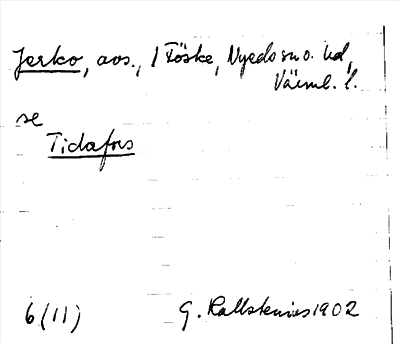 Jerko, avs., i Töske, Nyeds sn o. hd,
Värml. l.
se
Tidafors
6(11) G. Kallstenius 1902